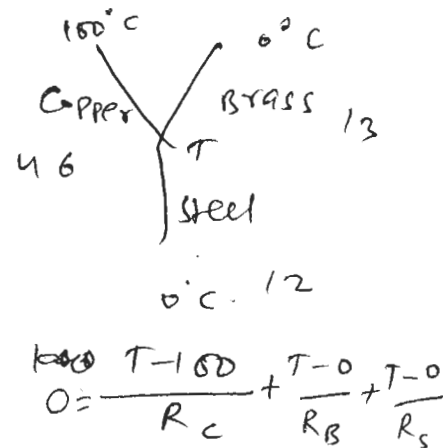 100°C 0°C
Copper Brass 13
46 T
Steel
0°C. 12
0 = T-100/R_C + T-0/R_B + T-0/R_S